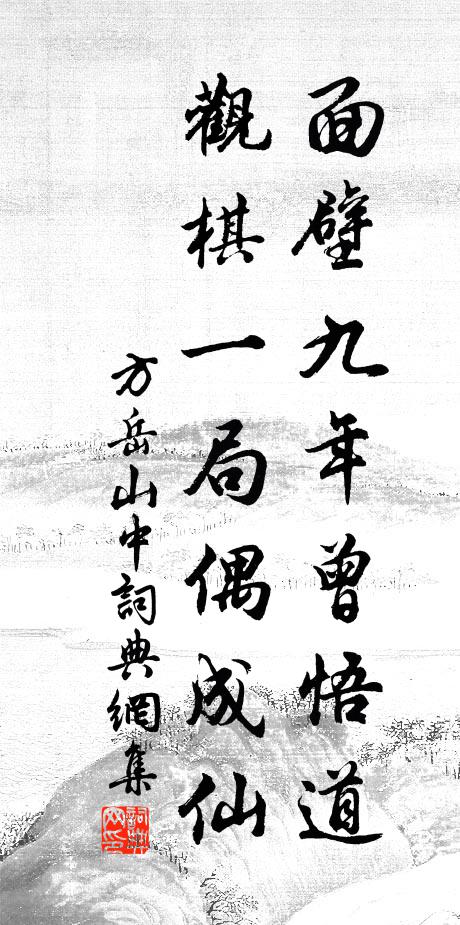 面壁九年曾悟道
觀棋一局偶成仙
方岳山中詞典網集